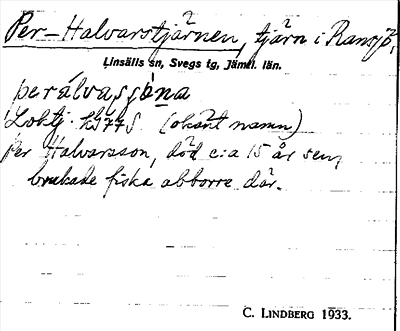 Per-Halvarstjärnen, tjärn i Ransjö,
Linsälls sn, Svegs tg, Jämtl. län.
perálvasšöna
Loktj. (okänt namn)
Per Halvarsson, död c:a 15 år sen,
brukade fiska abborre där.
C. LINDBERG 1933.